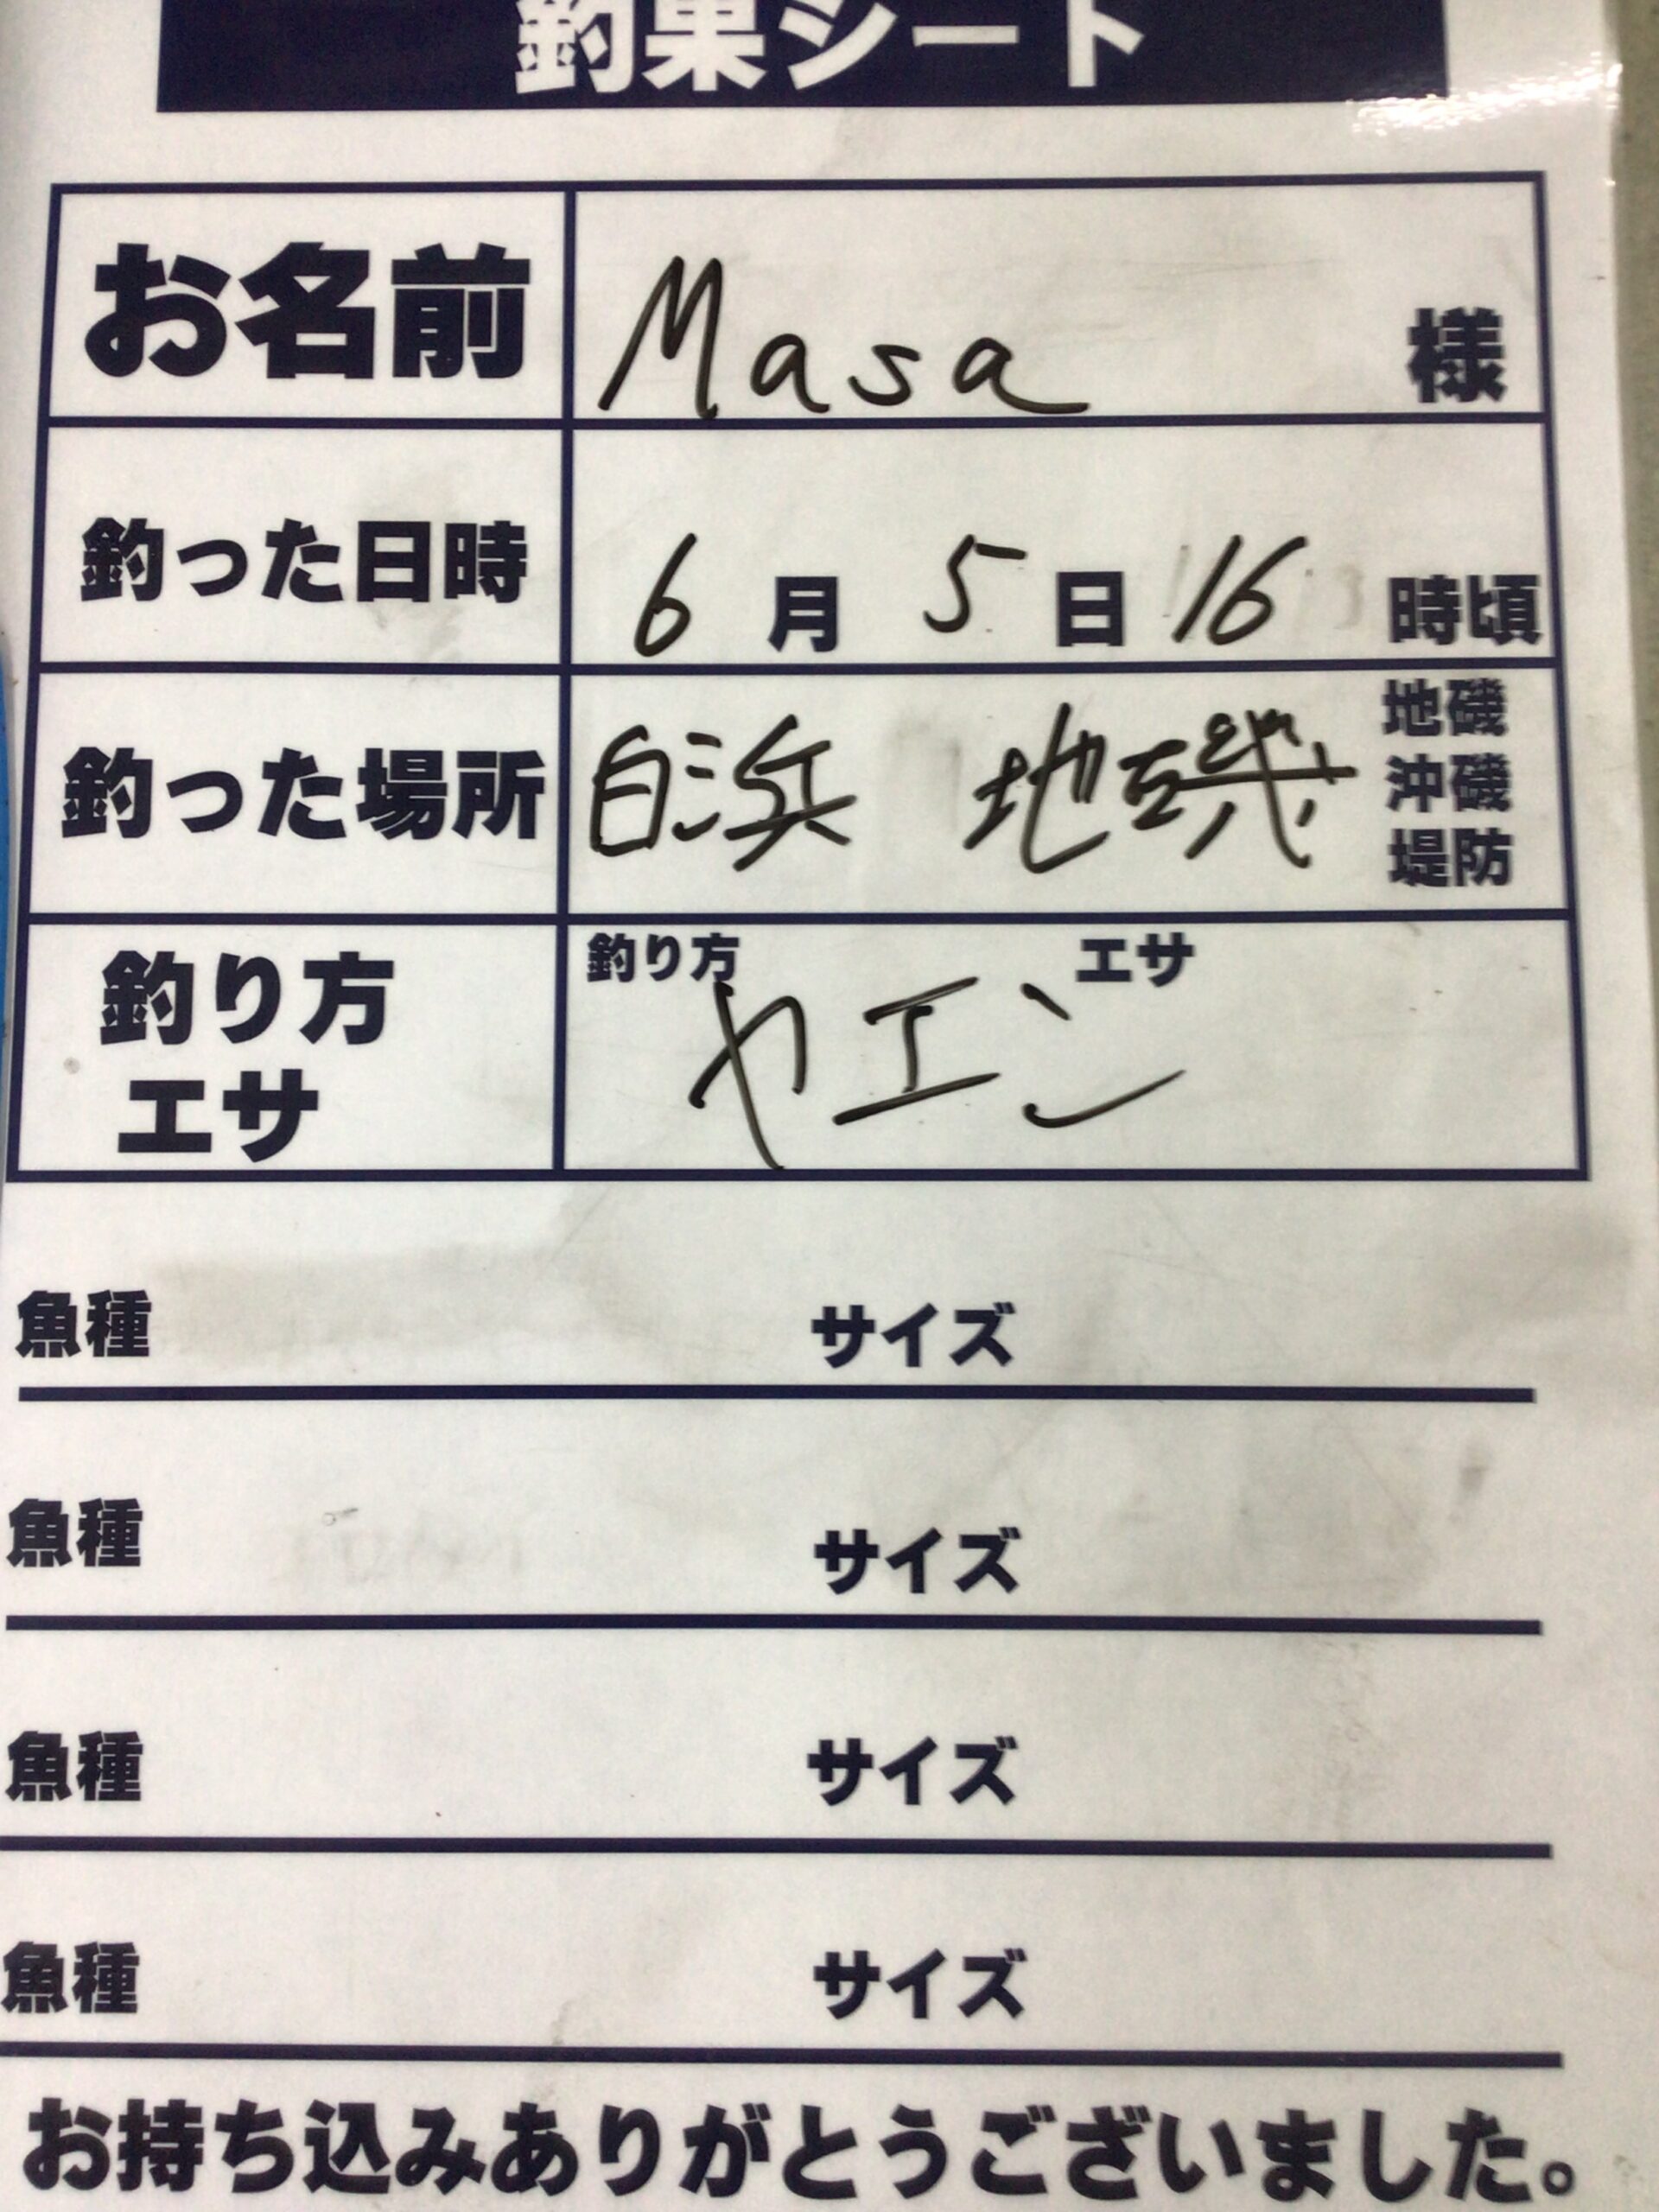 釣果シート
お名前 Masa 様
釣った日時 6月5日16時頃
釣った場所 白浜 地磯 地磯 沖磯 堤防
釣り方 エサ
釣り方 エサ
ヤエン
魚種 サイズ
魚種 サイズ
魚種 サイズ
魚種 サイズ
お持ち込みありがとうございました。